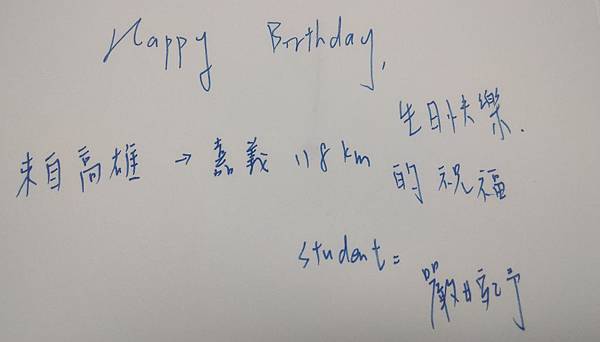 Happy Birthday,
生日快樂.
來自高雄 → 嘉義 118 km 的祝福
student: